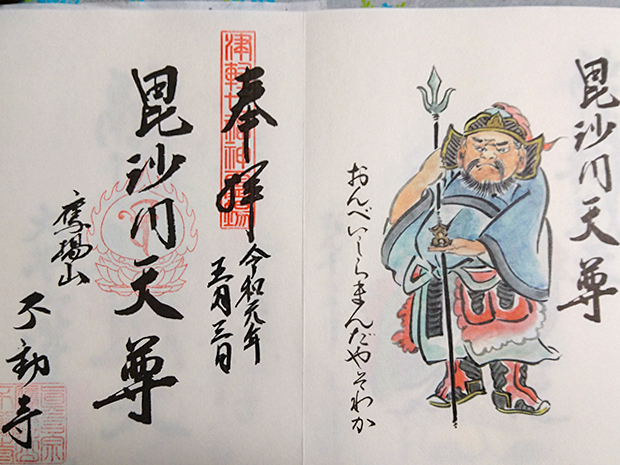 毘沙門天尊
おんべいしらまんだやそわか
津軽七福神霊場
奉拝
令和元年
五月三日
毘沙門天尊
鷹揚山
不動寺